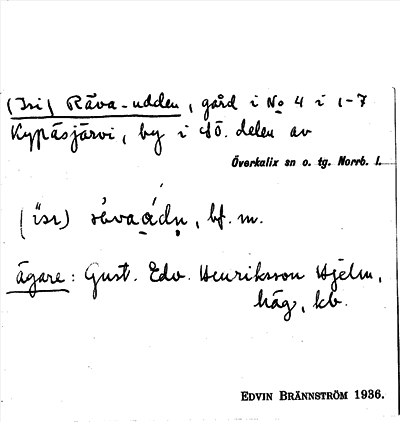 (Isi) Räva-udden, gård i No 4 i 1-7
Kypäsjärvi, by i sö. delen av
Överkalix sn o. tg. Norrb. l.
(ísı) rèvaádn, bf. m.
ägare: Gust. Edv. Henriksson Hjelm,
häg, kb.
EDVIN BRÄNNSTRÖM 1936.